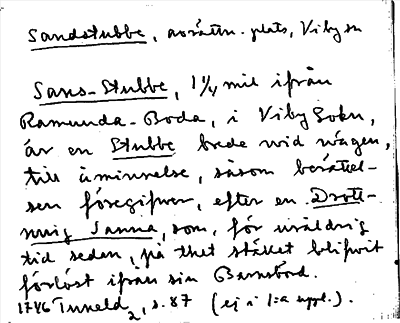 Sandstubbe, avrättn. plats, Viby sn
Sans-Stubbe, 1 1/4 mil ifrån
Ramunda-Boda, i Viby Sokn,
är en Stubbe brede wid wägen,
till åminnelse, såsom berättel-
sen föregifwer, efter en Drott-
ning Sanna, som, för uråldrig
tid sedan, på thet stället blifwit
förlöst ifrån sin Barnsbörd.
1746 Tuneld 2, s. 87 (ej i 1:a uppl.).